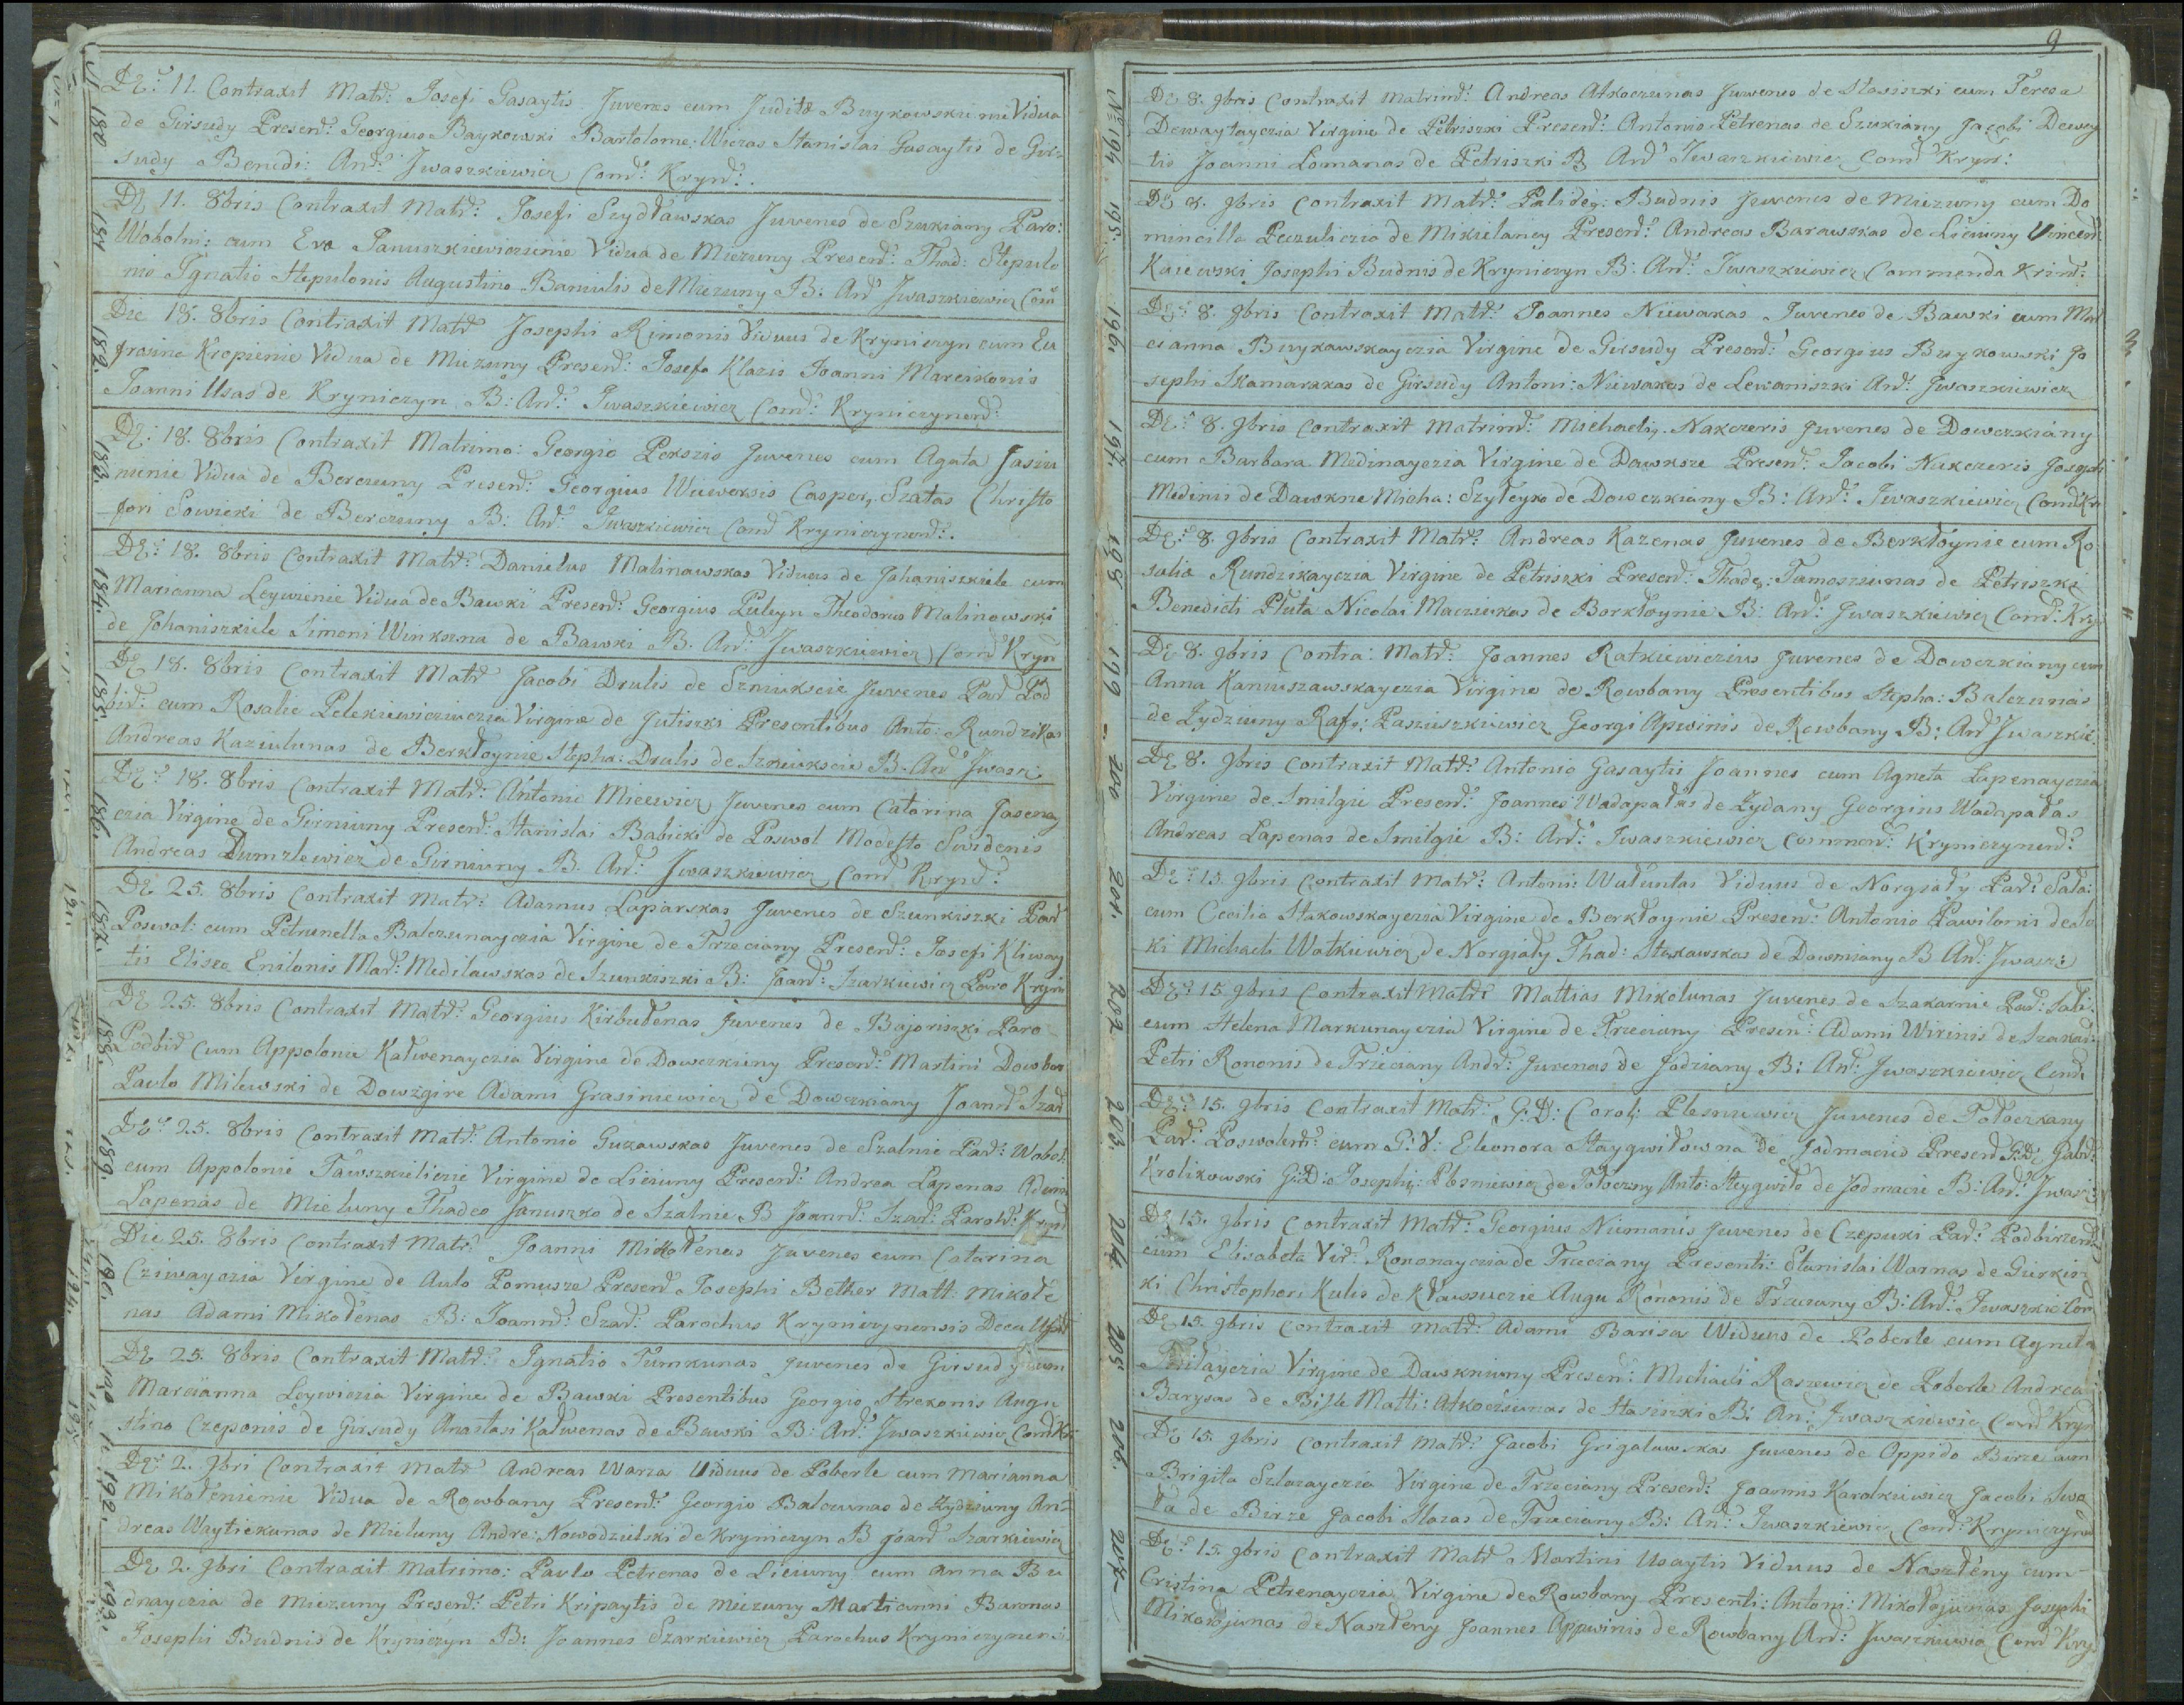 № 180
De: 11. Contraxit Matr: Josefi Gasaytis Juvenes cum Judite Vidua
de Girsudy Presend: Georgius Baykowski Bartolome: Wiezas Stanislai Gasaytis de Gir
sudy Benedi: And: Jwaszkiewicz Comd: Krynd:
181
De 11. 8bris Contraxit Matr: Josefi Szydławskas Juvenes de Szukiany Paro:
Wobolni: cum Eva Januszkiewiczienie Vidua de Miezuny Presend: Thad: Stepulo
nis Ignatio Stepulonis Augustino Baniulis de Miezuny B: And Jwaszkiewicz Com
182.
Die 18. 8bris Contraxit Matr Josephi Rimonis Viduus de Kryniczyn cum Eu
frosina Kropienie Vidua de Miezuny Presend: Josefa Klazis Joanni Marcikonis
Joanni Usas de Kryniczyn B: And: Jwaszkiewicz Comd: Kryniczynend:
183.
De: 18. 8bris Contraxit Matrimo: Georgio Pekszis Juvenes cum Agata Jasiu
nienie Vidua de Berczuny Presend: Georgius Wiewersis Casper, Szatas Christo
fori Sowicki de Berczuny B: And: Jwaszkiewicz Comd Kryniczynend:
184.
De: 18. 8bris Contraxit Matr: Danielus Malinawskas Viduus de Johaniszkiele cum
Marianna Leywienie Vidua de Bawki Presend: Georgius Puleyn Theodorus Malinowski
de Johaniszkiele Simoni Winkszna de Bawki B. And: Jwaszkiewicz Comd Kryn
185.
De 18. 8bris Contraxit Matr Jacobi Drulis de Szniukscie Juvenes Par Pod
bir: cum Rosalie Pelekiewicziuczia Virgine de Jutiszki Presentibus Anto: Rundzikas
Andreas Kaziulunas de Berkłoynie Stepha: Drulis de Szniukscie B. And Jwasz
186.
De: 18. 8bris Contraxit Matr: Antonio Micewicz Juvenes cum Catarina Jasenay
czia Virgine de Girniuny Presend: Stanislai Babicki de Poswol Modesto Swidenis
Andreas Dumzlewicz de Girniuny B. And: Jwaszkiewicz Comd Krynd:
187.
De 25. 8bris Contraxit Matr: Adamus Laparskas Juvenes de Szunkiszki Par
Poswol: cum Petrunella Balczunayczia Virgine de Trzeciany Presend: Josefi Kliway
tis Eliseo Enilonis Mar: Medilawskas de Szunkiszki B: Joand: Szarkiewicz Paro Kryn
188.
De 25. 8bris Contraxit Matr: Georgius Kirbutenas Juvenes de Bajoriszki Paro
Podbir cum Appolonie Katwenayczia Virgine de Dowczkiany Presend: Martini Dowbor
Pavlo Milewski de Dowzgire Adami Grasiniewicz de Dowczkiany Joand Szar
189.
De: 25. 8bris Contraxit Matr: Antonio Guzawskas Juvenes de Szalnie Par: Wobol:
cum Appolonie Tawszkieliczie Virgine de Liciuny Presend: Andrea Lapenas Adam
Lapenas de Mieluny Thadeo Januszko de Szalnie B Joannd: Szar: Paroh: Krynd
190.
Die 25. 8bris Contraxit Matr: Joanni Mikołenas Juvenes cum Catarina
Cziwayczia Virgine de Aulo Pomusze Presend Josephi Bether Matt: Mikołe
nas Adami Mikołenas B: Joannd: Szar: Parochus Kryniczynensis
191
De 25. 8bris Contraxit Matr: Ignatio Tumkunas Juvenes de Girsudy cum
Marcianna Leywiczia Virgine de Bawki Presentibus Georgio Strekonis Augu
stino Czeponis de Girsudy Anastasi Katwenas de Bawki B: And: Jwaszkiewicz Comd Kr
192.
De: 2. 9bri Contraxit Matr Andreas Warza Viduus de Poberle cum Marianna
Mikołenienie Vidua de Rowbany Presend: Georgio Balcunas de Zydziuny An
dreas Waytiekunas de Mieluny Andre: Nowodzielski de Kryniczyn B Joand Szarkiewicz
193.
De 2. 9bri Contraxit Matrimo: Pavlo Petrenas de Liciuny cum Anna Bu
dnayczia de Miezuny Presend: Petri Kripaytis de Miezuny Martianni Baronas
Josephi Budnis de Kryniczyn B: Joannes Szarkiewicz Parochus Kryniczynens
9
№ 194
De 8. 9bris Contraxit Matrimd: Andreas Atkoczunas Juvenes de Stasiszki cum Teresa
Dewaytayczia Virgine de Petriszki Presend: Antonio Petrenas de Szukiany Jacobi Dewey
tis Joanni Lomanas de Petriszki B And Jwaszkiewicz Comd Kryn:
195.
De 8. 9bris Contraxit Matr: Palideg: Budnis Juvenes de Miezuny cum Do
mincilla Peczuliczia de Mikielancy Presend: Andreas Barawskas de Liciuny Vincent
Kaiewski Josephi Budnis de Kryniczyn B: And: Jwaszkiewicz Commenda Krind:
196.
De: 8. 9bris Contraxit Matr: Joannes Niewakas Juvenes de Bawki cum Mar
cianna Buykawskayczia Virgine de Girsudy Presend: Georgius Buykowski Jo
sephi Skamarakas de Girsudy Antoni: Niewakas de Lewaniszki And: Jwaszkiewicz
197.
De: 8. 9bris Contraxit Matrimd: Michaelis Nakczeris Juvenes de Dowczkiany
cum Barbara Medinayczia Virgine de Dawksze Presend: Jacobi Nakczeris Josephi
Medinis de Dawksze Micha: Szyleyko de Dowczkiany B: And: Jwaszkiewicz Comd Kr
198
De: 8. 9bris Contraxit Matr: Andreas Kazenas Juvenes de Berkłoynie cum Ro
salia Rundzikayczia Virgine de Petriszki Presend: Thade: Tamoszunas de Petriszki
Benedicti Pluta Nicolai Macziukas de Borkłoynie B: And: Jwaszkiewicz Comd: Kry
199
De 8. 9bris Contra: Matr: Joannes Ratkiewiczius Juvenes de Dowczkiany cum
Anna Kaniuszawskayczia Virgine de Rowbany Presentibus Stepha: Balczunas
de Zydziuny Raf: Pasziuszkiewicz Georgi Apwinis de Rowbany B: And Jwaszkie
200
De 8. 9bris Contraxit Matr: Antonio Gasaytis Joannes cum Agneta Lapenayczia
Virgine de Smilgie Presend: Joannes Wadapałas de Zydany Georgius Wadapałas
Andreas Lapenas de Smilgie B: And: Jwaszkiewicz Commend: Kryniczynend:
201.
De: 15. 9bris Contraxit Matr: Antoni: Waluntas Viduus de Norgiały Par: Sała:
cum Cecilia Stakowskayczia Virgine de Berkłoynie Presend: Antonio Pawilonis de
ki Michaeli Watkiewicz de Norgiały Thad: Stakawskas de Dawmiany B And: Jwasz:
202
De: 15 9bris Contraxit Matr: Mattias Mikolunas Juvenes de Szakarnie Par: Sała:
cum Helena Markunayczia Virgine de Trzeciany Presend: Adami Wirinis de Szakar
Petri Rononis de Trzeciany Andr: Juvenas de Jodziany B: And: Jwaszkiewicz Comd.
203.
De: 15. 9bris Contraxit Matr: G: D: Caroli Plesniewicz Juvenes de Tołoczkany
Par: Poswolend: cum G: V: Eleonora Staygwiłowna de Jodmacie Presend G: D: Gabd:
Krolikowski G: D: Josephi: Plesniewicz de Tołoczny Anto: Steygwiło de Jodmacie B: And: Jwasz
204
De 15. 9bris Contraxit Matr: Georgius Niemanis Juvenes de Czepuki Par: Podbirzend:
cum Elisabeta Vir: Rononayczia de Trzeciany Presenti: Stanislai Warnas de Girkin
ki Christophori Kulis de Kławsuczie Augu Rononis de Trzeciany B: And: Jwaszkie Com
205
De 15. 9bris Contraxit Matr: Adami Barisa Widuus de Poberle cum Agneta
Virgine de Dawkniuny Presend: Michaeli Raszewicz de Poberle Andrea
Barysas de Matti: Atkoczunas de Stasiszki B: And: Jwaszkiewicz Comd Kryn
206.
De 15. 9bris Contraxit Matr: Jacobi Grigalawskas Juvenes de Oppido Birze cum
Brigita Szlazayczia Virgine de Trzeciany Presend: Joannis Karolkiewicz Jacobi
ta de Birze Jacobi Slazas de Trzeciany B: And: Jwaszkiewicz Comd: Kryniczynd
207
De: 15. 9bris Contraxit Matr Martini Usaytis Viduus de Naszleny cum
Cristina Petrenayczia Virgine de Rowbany Presenti: Antoni: Mikołajunas Josephi
Mikołajunas de Naszleny Joannes Appwinis de Rowbany And: Jwaszkiewicz Comd Kry